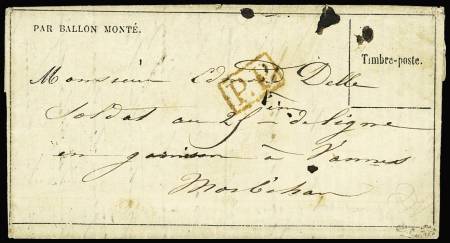 PAR BALLON MONTÉ.
Timbre-poste.
Monsieur Edmond Delle
P.P.
Soldat au 25 ème de ligne
en garnison à Vannes
Morbihan